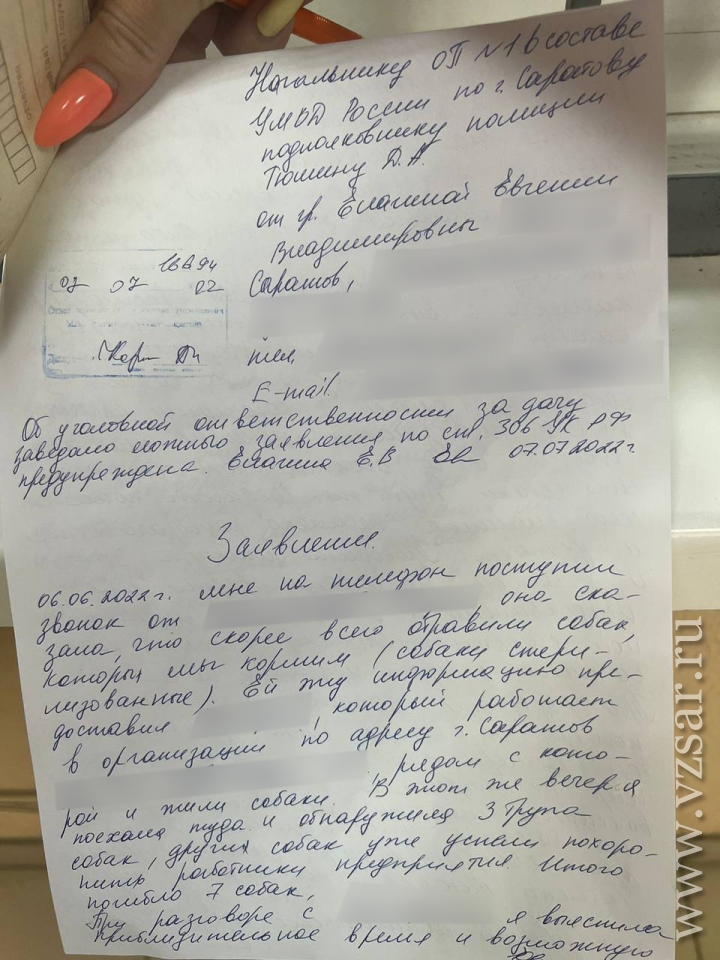 Начальнику ОП №1 в составе
УМВД России по г. Саратову
подполковнику полиции
Тюшину Д.А.
от гр. Елашной Евгении
Владимировны
Саратов,
07 07
тел,
E-mail.
Об уголовной ответственности за дачу
заведомо ложного заявления по ст. 306 УК РФ
предупреждена. Е.В 07.07.2022г.
Заявление.
06.06.2022г. мне на телефон поступил
звонок от она ска-
зала, что скорее всего отравили собак,
которых мы кормим (собаки стери-
лизованные). Ей эту информацию пре-
доставил , который работает
в организации по адресу г. Саратов
рядом с кото-
рой и жили собаки. В этот же вечер я
поехала туда и обнаружила 3 трупа
собак, других собак уже успели похоро-
нить работники предприятия. Итого
погибло 7 собак,
При разговоре с я выяснила
приблизительное время и возможную
www.vzsar.ru